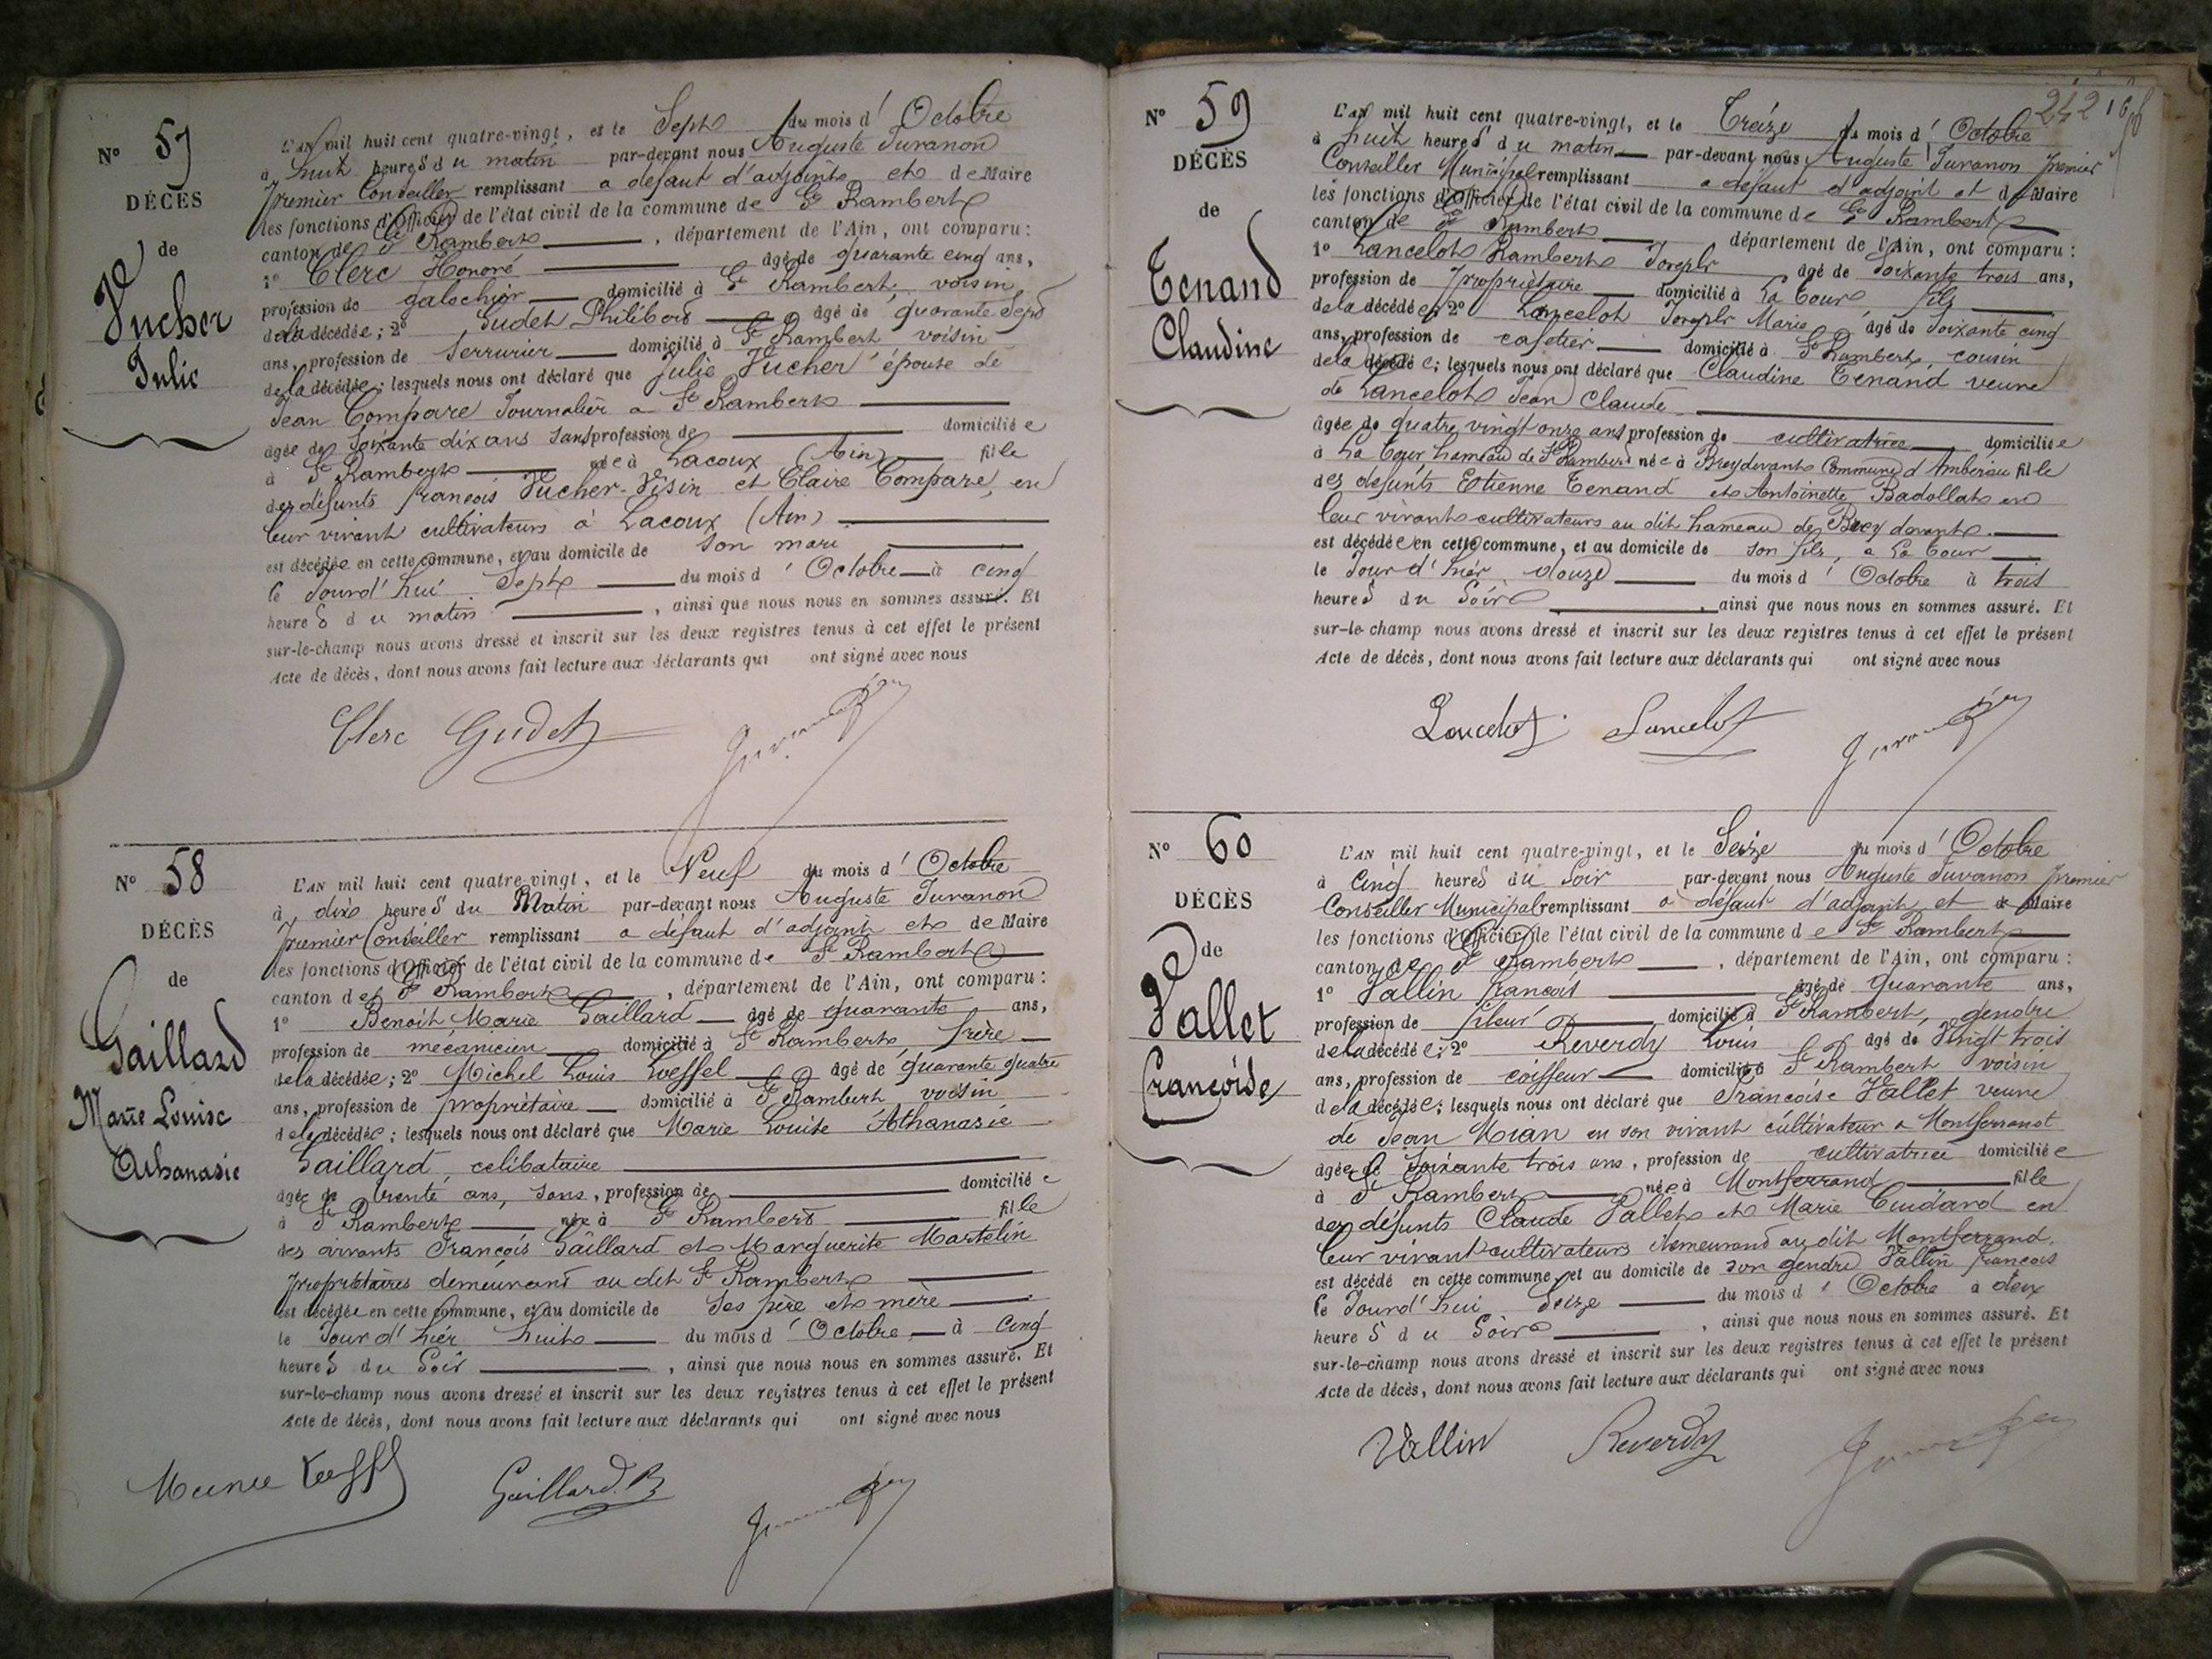 N° 57
DÉCÈS
de
Vucher
Julie
L'AN mil huit cent quatre-vingt, et le Sept du mois d'Octobre
à huit heures du matin par-devant nous Auguste Juvanon
premier Conseiller remplissant a défaut d'adjoint et de Maire
les fonctions d'Officier de l'état civil de la commune de St Rambert
canton de St Rambert, département de l'Ain, ont comparu:
1° Clerc Honoré âgé de quarante cinq ans,
profession de galochier domicilié à St Rambert, voisin
de la décédée; 2° Gudet Philibert âgé de quarante sept
ans, profession de Serrurier domicilié à St Rambert voisin
de la décédée; lesquels nous ont déclaré que Julie Vucher épouse de
Jean Compare Journalier a St Rambert
âgée de soixante dix ans sans profession de domiciliée
à St Rambert née à Lacoux (Ain) fille
des défunts françois Vucher-Visin et Claire Compare, en
leur vivant cultivateurs à Lacoux (Ain)
est décédée en cette commune, et au domicile de son mari
le Jourd'hui Sept du mois d'Octobre à cinq
heures du matin, ainsi que nous nous en sommes assuré. Et
sur-le-champ nous avons dressé et inscrit sur les deux registres tenus à cet effet le présent
Acte de décès, dont nous avons fait lecture aux déclarants qui ont signé avec nous
Clerc Gudet
N° 58
DÉCÈS
de
Gaillard
Marie Louise
Athanasie
L'AN mil huit cent quatre-vingt, et le Neuf du mois d'Octobre
à dix heures du Matin par-devant nous Auguste Juvanon
premier Conseiller remplissant a défaut d'adjoint et de Maire
les fonctions d'Officier de l'état civil de la commune de St Rambert
canton de St Rambert, département de l'Ain, ont comparu:
1° Benoit Marie Gaillard âgé de quarante ans,
profession de mécanicien domicilié à St Rambert, frère
de la décédée; 2° Michel Louis Loeffel âgé de quarante quatre
ans, profession de propriétaire domicilié à St Rambert voisin
de la décédée; lesquels nous ont déclaré que Marie Louise Athanasie
Gaillard, celibataire
âgée de trente ans, sans, profession de domiciliée
à St Rambert née à St Rambert fille
des vivants François Gaillard et Marguerite Martelin
propriétaires demeurant au dit St Rambert
est décédée en cette commune, et au domicile de ses père et mère
le Jour d'hier huit du mois d'Octobre à cinq
heures du Soir, ainsi que nous nous en sommes assuré. Et
sur-le-champ nous avons dressé et inscrit sur les deux registres tenus à cet effet le présent
Acte de décès, dont nous avons fait lecture aux déclarants qui ont signé avec nous
Gaillard. B
N° 59
DÉCÈS
de
Tenand
Claudine
L'AN mil huit cent quatre-vingt, et le Treize du mois d'Octobre
à huit heures du matin par-devant nous Auguste Juvanon premier
Conseiller Municipal remplissant a défaut d'adjoint et de Maire
les fonctions d'Officier de l'état civil de la commune de St Rambert
canton de St Rambert département de l'Ain, ont comparu:
1° Lancelot Rambert Joseph âgé de Soixante trois ans,
profession de propriétaire domicilié à La Cour fils
de la décédée; 2° Lancelot Joseph Marie âgé de soixante cinq
ans, profession de cafetier domicilié à St Rambert, cousin
de la décédée; lesquels nous ont déclaré que Claudine Tenand veuve
de Lancelot Jean Claude
âgée de quatre vingt onze ans profession de cultivatrice domiciliée
à La Cour hameau de St Rambert née à Breydevant Commune d'Ambérieu fille
des défunts Etienne Tenand et Antoinette Badollat en
leur vivant cultivateurs au dit hameau de Brey devant
est décédée en cette commune, et au domicile de son fils, a La Cour
le Jour d'hier douze du mois d'Octobre à trois
heures du Soir, ainsi que nous nous en sommes assuré. Et
sur-le-champ nous avons dressé et inscrit sur les deux registres tenus à cet effet le présent
Acte de décès, dont nous avons fait lecture aux déclarants qui ont signé avec nous
Lancelot Lancelot
N° 60
DÉCÈS
de
Vallet
Françoise
L'AN mil huit cent quatre-vingt, et le Seize du mois d'Octobre
à Cinq heures du Soir par-devant nous Auguste Juvanon premier
Conseiller Municipal remplissant a défaut d'adjoint et de Maire
les fonctions d'Officier de l'état civil de la commune de St Rambert
canton de St Rambert, département de l'Ain, ont comparu:
1° Vallin françois âgé de Quarante ans,
profession de fileur domicilié à St Rambert, gendre
de la décédée; 2° Reverdy Louis âgé de Vingt trois
ans, profession de coiffeur domicilié à St Rambert voisin
de la décédée; lesquels nous ont déclaré que Françoise Vallet veuve
de Jean Mian en son vivant cultivateur a Montferrand
âgée de soixante trois ans, profession de cultivatrice domiciliée
à St Rambert née à Montferrand fille
des défunts Claude Vallet et Marie Cuidard en
leur vivant cultivateurs demeurant au dit Montferrand.
est décédé en cette commune, et au domicile de son gendre Vallin françois
le Jourd'hui Seize du mois d'Octobre à deux
heures du Soir, ainsi que nous nous en sommes assuré. Et
sur-le-champ nous avons dressé et inscrit sur les deux registres tenus à cet effet le présent
Acte de décès, dont nous avons fait lecture aux déclarants qui ont signé avec nous
Vallin Reverdy